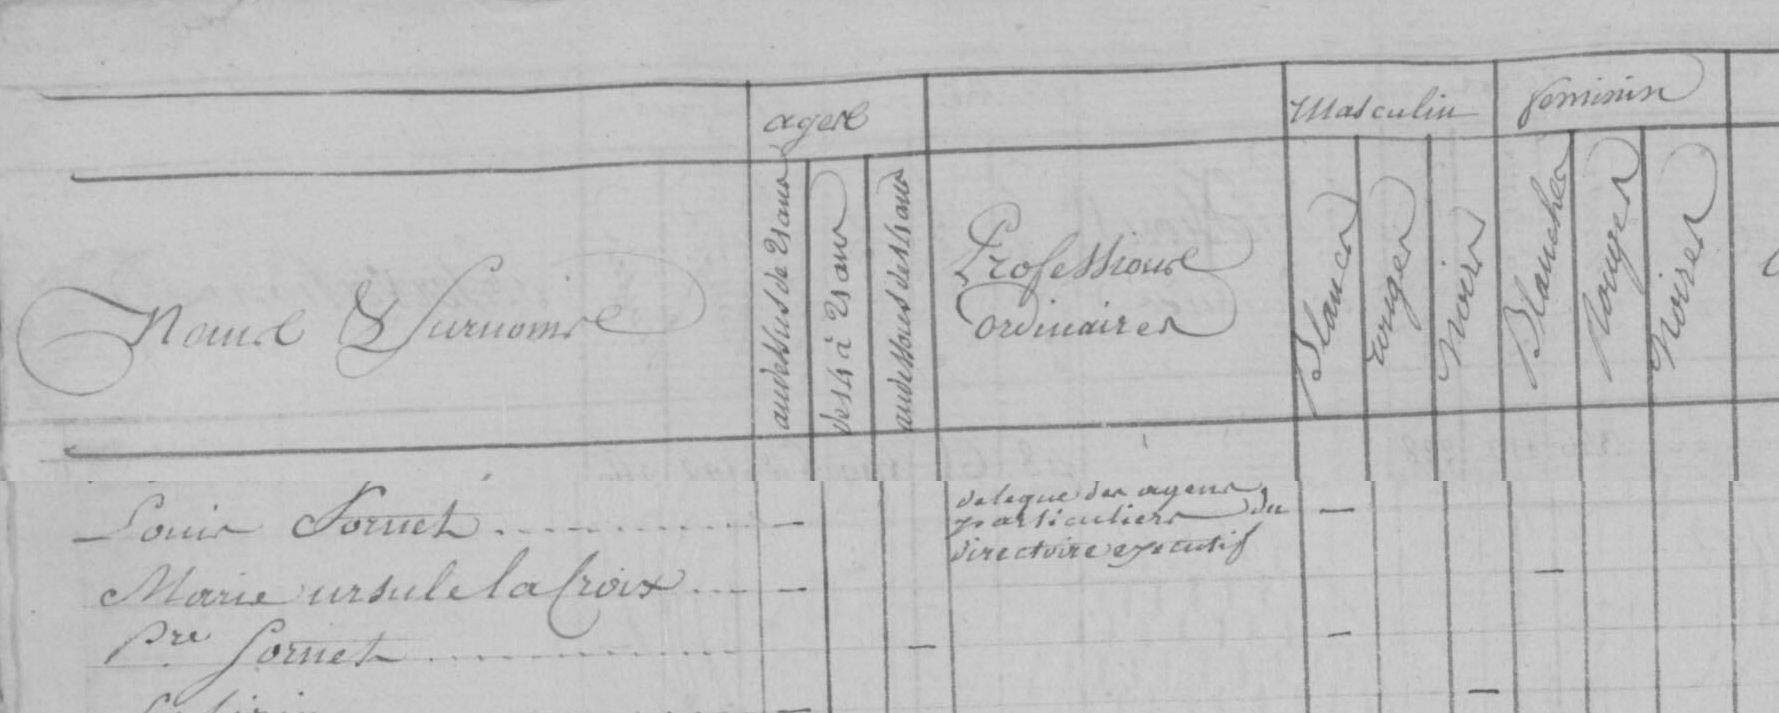 agese
Masculin
feminin
Noms & Surnoms
audessus de 21 ans
de 14 à 21 ans
audessous de 14 ans
Professions
ordinaires
Blancs
rouges
Noirs
Blanches
Rouges
Noires
Louis Sornet
delegué des agens
particuliers du
directoire executif
Marie ursule la Croix
Pre Sornet